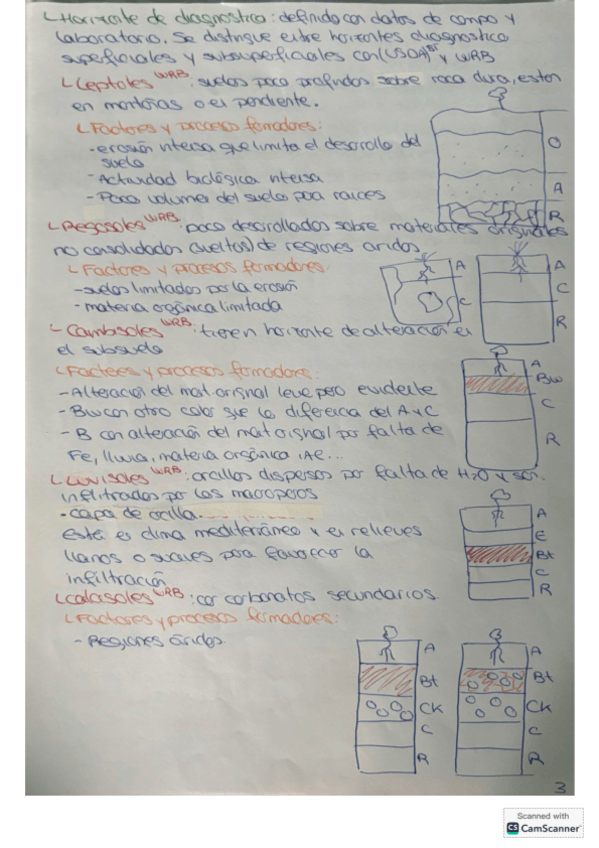 Horizonte de diagnostico: definido con datos de campo y
laboratorio. Se distingue entre horizontes diagnostico
superficiales y subsuperficiales con (USDA)ST y WRB
Leptoles WRB: suelos poco profundos sobre roca dura, esten
en montañas o en pendiente.
Factores y procesos formadores:
- erosión intensa que limita el desarollo del
suelo
- Actividad biológica intensa
- Poco volumen del suelo para raices
O
A
R
Regosoles WRB: poco desarrollados sobre materiales originales
no consolidados (sueltos) de regiones aridas
Factores y procesos formadores:
- suelos limitados por la erosión
- materia orgánica limitada
A
C
A
C
R
Cambisoles WRB: tienen horizonte de alteración en
el subsuelo
Factores y procesos formadores:
- Alteración del mat. original leve pero evidente
- Bw con otro color que lo diferencia del A y C
- B con alteración del mat original por falta de
Fe, lluvia, materia orgánica, Al...
A
Bw
C
R
Luvisoles WRB: arcillas dispersas por falta de H2O y son
infiltradas por los macroporos
- capa de arcilla
Está en clima mediterráneo y en relieves
llanos o suaves para favorecer la
infiltración
A
E
Bt
C
R
Calcisoles WRB: con carbonatos secundarios.
Factores y procesos formadores:
- Regiones áridas
A
Bt
CK
C
R
A
Bt
CK
C
R
3
Scanned with
CS CamScanner